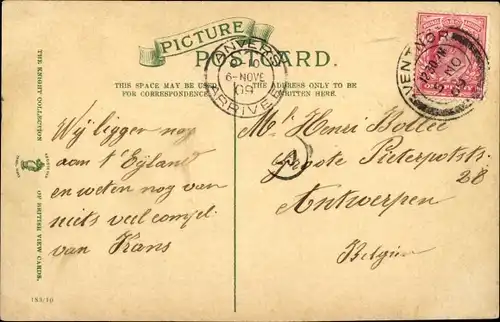 PICTURE
POSTCARD.
THIS SPACE MAY BE USED
FOR CORRESPONDENCE.
THE ADDRESS ONLY TO BE
WRITTEN HERE.
ANVERS
6-NOVE
09
ARRIVÉE
VENTNOR
NO
09
THE KNIGHT COLLECTION
OF BRITISH VIEW CARDS.
Wij liggen nog
aan t'Eyland
en weten nog van
niets veel compl.
van Frans
Mr Henri Bollée
Groote Pieterpotstr.
28
Antwerpen
Belgien
A